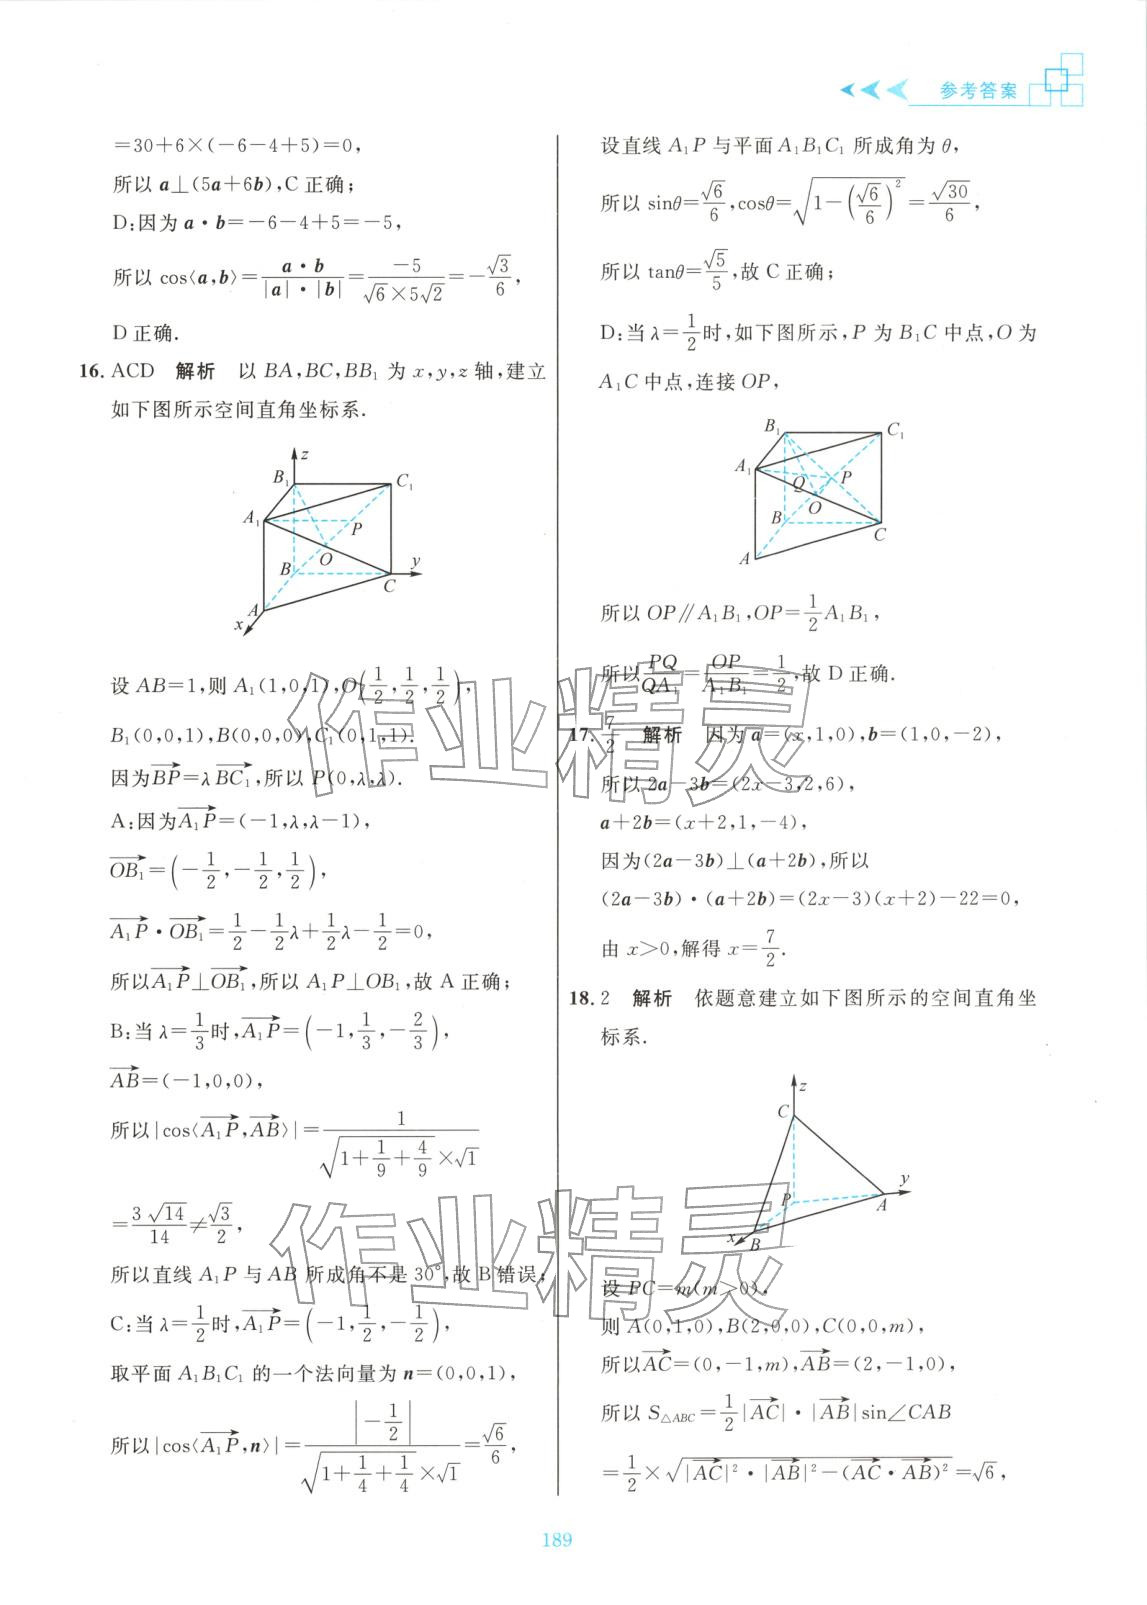 参考答案
=30+6×(-6-4+5)=0,
所以 a⊥(5a+6b),C 正确;
D:因为 a·b=-6-4+5=-5,
所以 cos⟨a,b⟩=a·b/(|a|·|b|)=-5/(√6×5√2)=-√3/6,
D 正确.
16. ACD 解析 以 BA,BC,BB₁ 为 x,y,z 轴,建立
如下图所示空间直角坐标系.
z
B₁
C₁
A₁
P
O
B
y
C
A
x
设 AB=1,则 A₁(1,0,1),O(1/2,1/2,1/2),
B₁(0,0,1),B(0,0,0),C₁(0,1,1).
因为BP→=λBC₁→,所以 P(0,λ,λ).
A:因为A₁P→=(-1,λ,λ-1),
OB₁→=(-1/2,-1/2,1/2),
A₁P→·OB₁→=1/2-1/2λ+1/2λ-1/2=0,
所以A₁P→⊥OB₁→,所以 A₁P⊥OB₁,故 A 正确;
B:当 λ=1/3时,A₁P→=(-1,1/3,-2/3),
AB→=(-1,0,0),
所以|cos⟨A₁P→,AB→⟩|=1/(√(1+1/9+4/9)×√1)
=3√14/14≠√3/2,
所以直线 A₁P 与 AB 所成角不是 30°,故 B 错误;
C:当 λ=1/2时,A₁P→=(-1,1/2,-1/2),
取平面 A₁B₁C₁ 的一个法向量为 n=(0,0,1),
所以|cos⟨A₁P→,n⟩|=|-1/2|/(√(1+1/4+1/4)×√1)=√6/6,
设直线 A₁P 与平面 A₁B₁C₁ 所成角为 θ,
所以 sinθ=√6/6,cosθ=√(1-(√6/6)²)=√30/6,
所以 tanθ=√5/5,故 C 正确;
D:当 λ=1/2时,如下图所示,P 为 B₁C 中点,O 为
A₁C 中点,连接 OP,
B₁
C₁
A₁
Q
P
O
B
C
A
所以 OP∥A₁B₁,OP=1/2A₁B₁,
所以PQ/QA₁=OP/A₁B₁=1/2,故 D 正确.
17. 7/2 解析 因为 a=(x,1,0),b=(1,0,-2),
所以 2a-3b=(2x-3,2,6),
a+2b=(x+2,1,-4),
因为(2a-3b)⊥(a+2b),所以
(2a-3b)·(a+2b)=(2x-3)(x+2)-22=0,
由 x>0,解得 x=7/2.
18. 2 解析 依题意建立如下图所示的空间直角坐
标系.
z
C
y
P
A
x
B
设 PC=m(m>0),
则 A(0,1,0),B(2,0,0),C(0,0,m),
所以AC→=(0,-1,m),AB→=(2,-1,0),
所以 S△ABC=1/2|AC→|·|AB→|sin∠CAB
=1/2×√(|AC→|²·|AB→|²-(AC→·AB→)²)=√6,
作业精灵
作业精灵
189